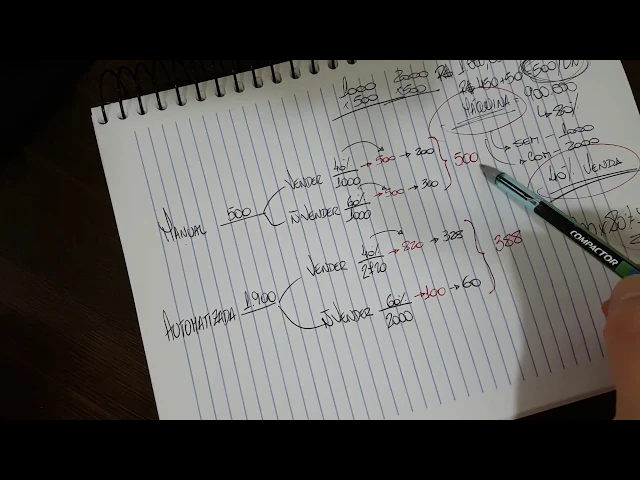 1000 2000
x500 x500
500/UN
R$ 450+50
900.000
MÁQUINA
480/
SEM - 1000
COM - 2000
40% VENDA
MANUAL 500
VENDER 40% 1000 → 500 → 200
Ñ VENDER 60% 1000 → 500 → 300
500
AUTOMATIZADA 1900
VENDER 40% 2720 → 820 → 328
Ñ VENDER 60% 2000 → 100 → 60
388
COMPACTOR